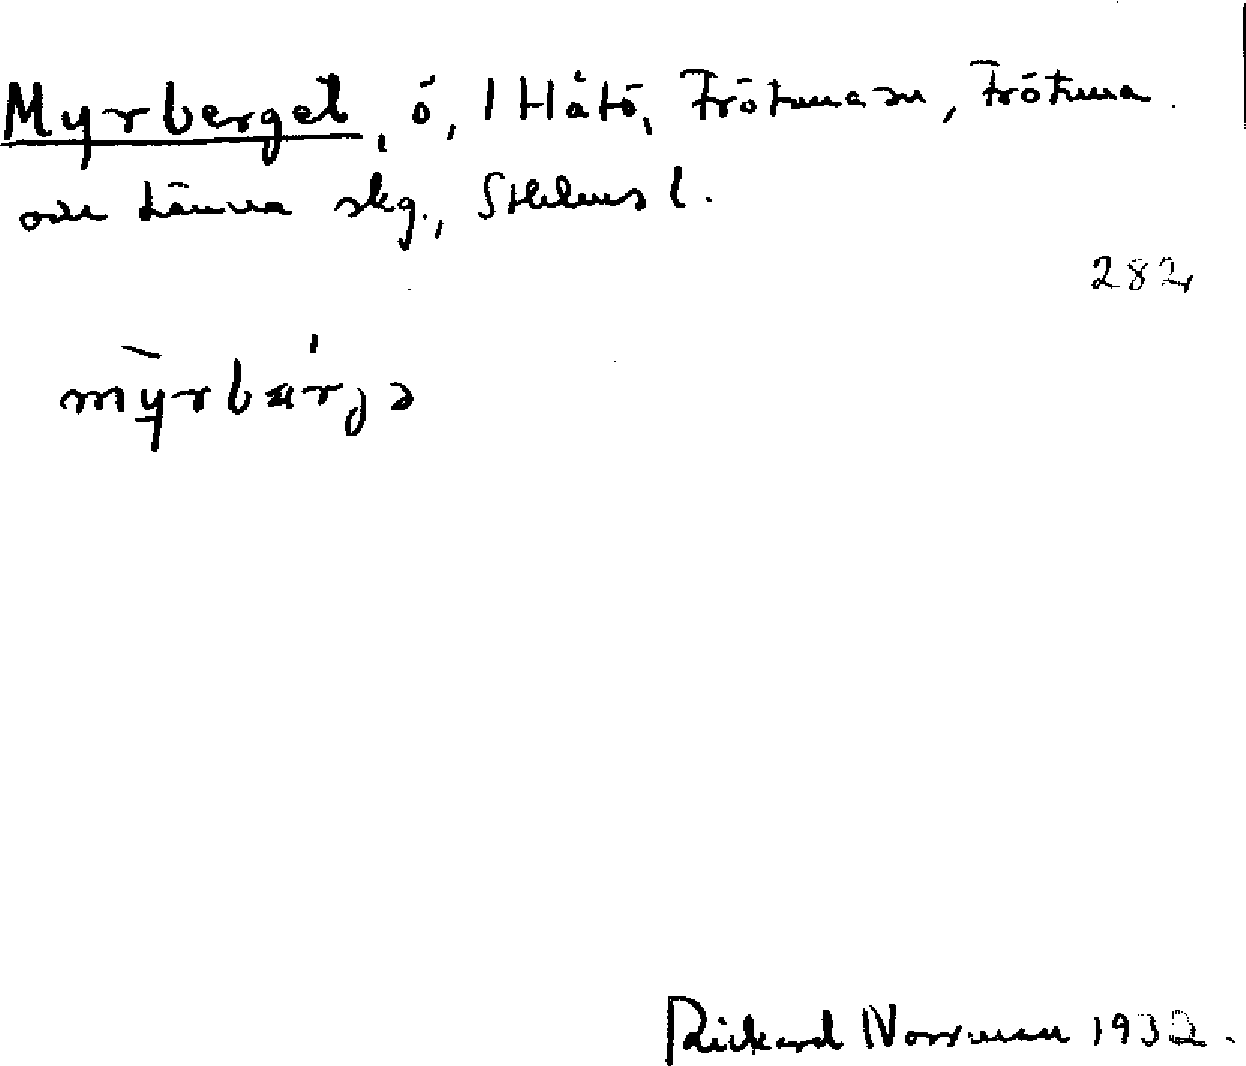 Myrberget, ö, 1 Håtö, Frötuna sn, Frötuna
och Länna skg., Sthlms l.
282
my̆rbærjə
Rickard Norrman 1932.